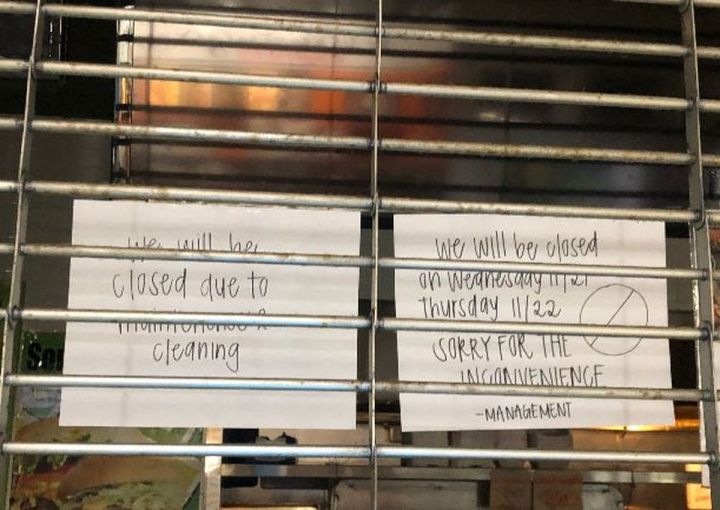 we will be
closed due to
maintenance &
cleaning
we will be closed
on Wednesday 11/21
Thursday 11/22
SORRY FOR THE
INCONVENIENCE
-MANAGEMENT